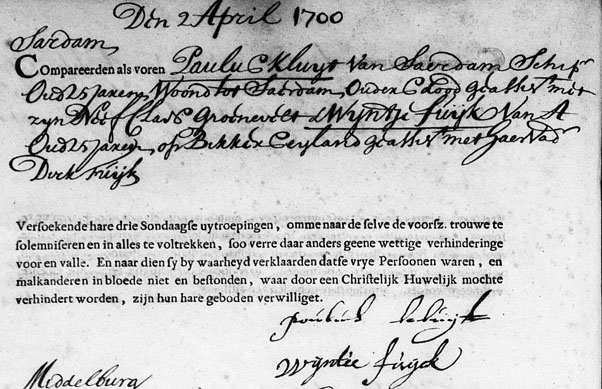 Den 2 April 1700
Sardam
Compareerden als voren Paulus Kluyt van Saerdam Schipr
Oud 25 jaren, Woond tot Saerdam, Ouders dood geassistr met
zyn Neef Claes Groenevelt & Wyntje fuijk Van A
Oud 25 jaren, op Bikkers Eyland geassistr met haer Vadr
Dirk fuijk
Versoekende hare drie Sondaagse uytroepingen, omme naar de selve de voorsz. trouwe te
solemniseren en in alles te voltrekken, soo verre daar anders geene wettige verhinderinge
voor en valle. En naar dien sy by waarheyd verklaarden datse vrye Persoonen waren, en
malkanderen in bloede niet en bestonden, waar door een Christelijk Huwelijk mochte
verhindert worden, zijn hun hare geboden verwilliget.
Wyntie fuyck
Middelburg